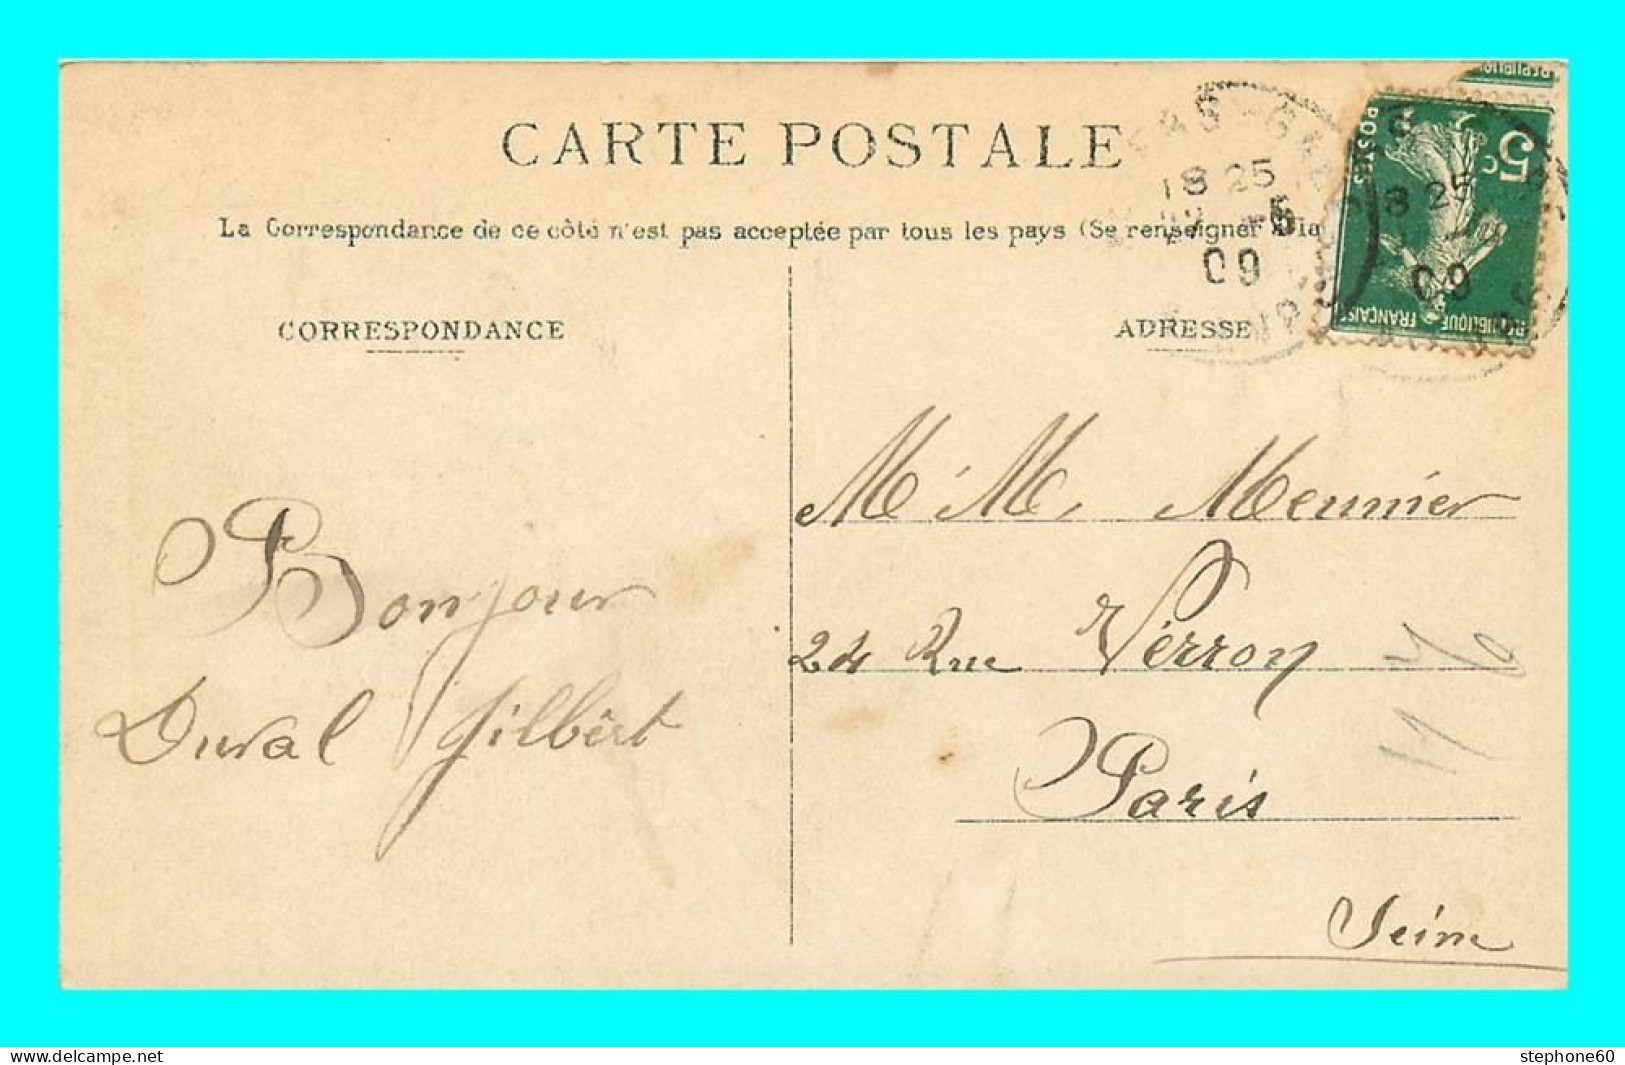 CARTE POSTALE
La Correspondance de ce côté n'est pas acceptée par tous les pays (Se renseigner à la
CORRESPONDANCE
ADRESSE
18 25
-5
09
8 25
09
RÉPUBLIQUE
5c
POSTES
RÉPUBLIQUE FRANÇAISE
Bonjour
Duval Gilbert
M. M. Meunier
24 Rue Vérron
Paris
Seine
www.delcampe.net
stephone60